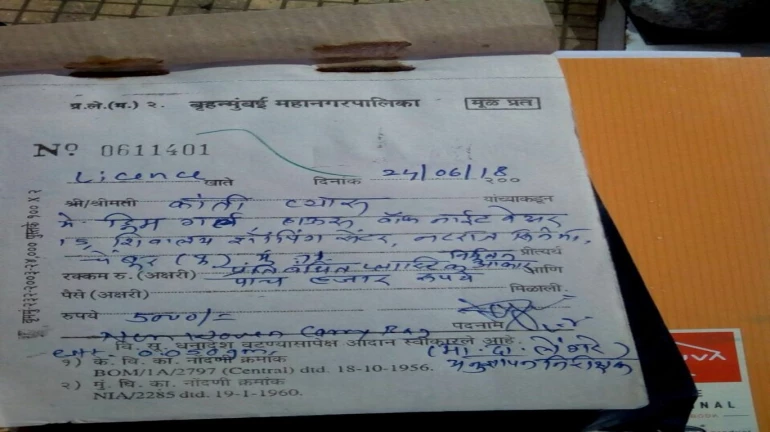 प्र.ले.(म.) २. बृहन्मुंबई महानगरपालिका मूळ प्रत
Nº 0611401
Licence खाते दिनांक 24/06/18 २००
श्री/श्रीमती कांती व्यास यांच्याकडून
मे. ड्रिम गर्ल, हाऊस ऑफ नाईट वेअर
15, शिवालय शॉपिंग सेंटर, नटराज सिनेमा,
चेंबूर (पू) मुं प्रीत्यर्थ
रक्कम रु. (अक्षरी) प्रतिबंधित प्लास्टिक आणि
पैसे (अक्षरी) पाच हजार रुपये मिळाली.
रुपये 5000/= पदनाम
Non Woven Carry Bag
वि. सू. धनादेश वटण्यासापेक्ष आदान स्वीकारले आहे.
0.050 gm,
१) के. चि. का. नोंदणी क्रमांक
BOM/1A/2797 (Central) dtd. 18-10-1956.
(भा. दा. लोंगरे)
अनुज्ञापन निरीक्षक
२) मुं. चि. का. नोंदणी क्रमांक
NIA/2285 dtd. 19-1-1960.
NAL